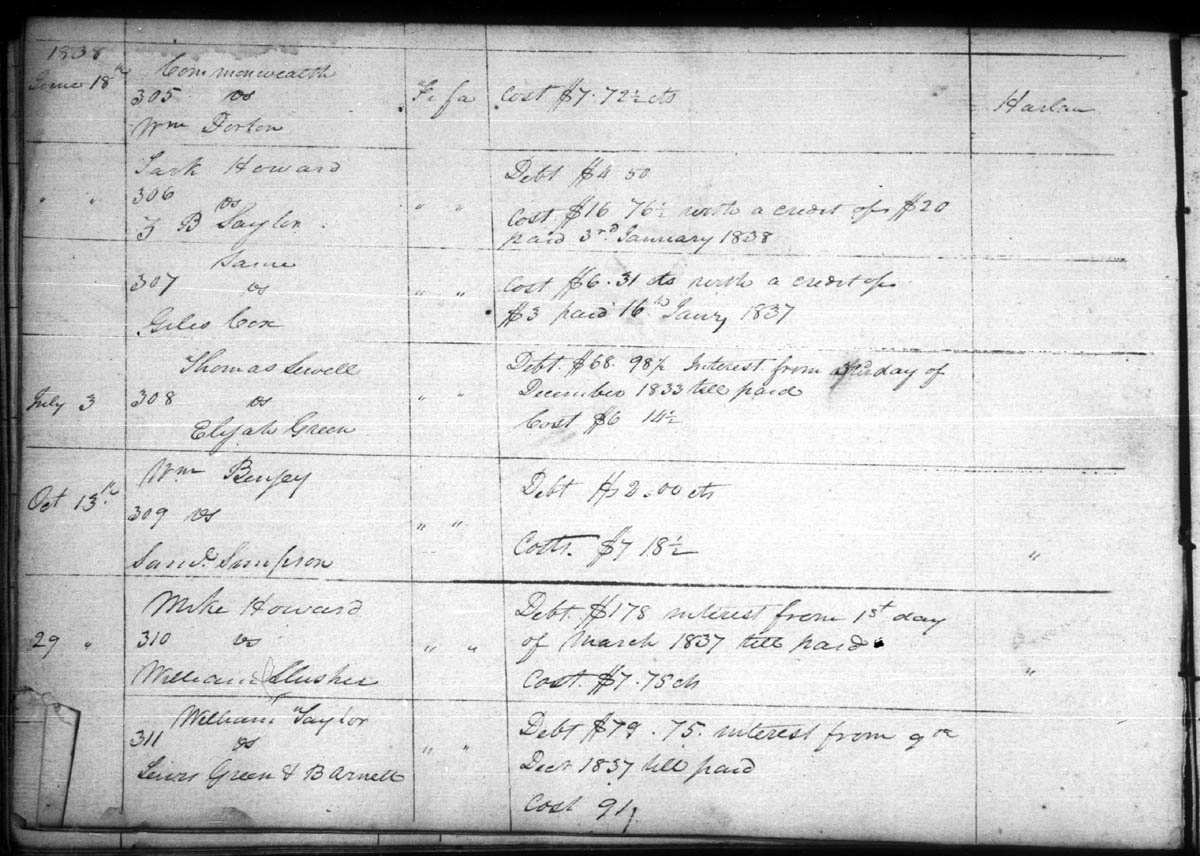 1838
June 18th Commonwealth
305 vs Fi fa Cost $7.72½ cts Harlan
Wm Dorton
Sark Howard Debt $4 50
" " 306 vs " " Cost $16 76½ with a credit of $20
J B Saylor paid 3rd January 1838
Same
307 vs " " Cost $6.31 cts with a credit of
Giles Cox $3 paid 16th Jany 1837
Thomas Sewell Debt $68.98½ Interest from day of
July 3 308 vs " " December 1833 till paid
Elijah Green Cost $6 14½
Wm Benjey Debt $2.00 cts
Oct 13th 309 vs " "
Saml Simpson Costs. $7 18½ "
Mike Howard Debt. $178 interest from 1st day
29 " 310 vs " " of March 1837 till paid
William Slusher Cost. $7.78 cts "
William Saylor Debt $79.75. interest from 9th
311 vs " " Decr 1837 till paid
Lewis Green & B Arnett
Cost 91